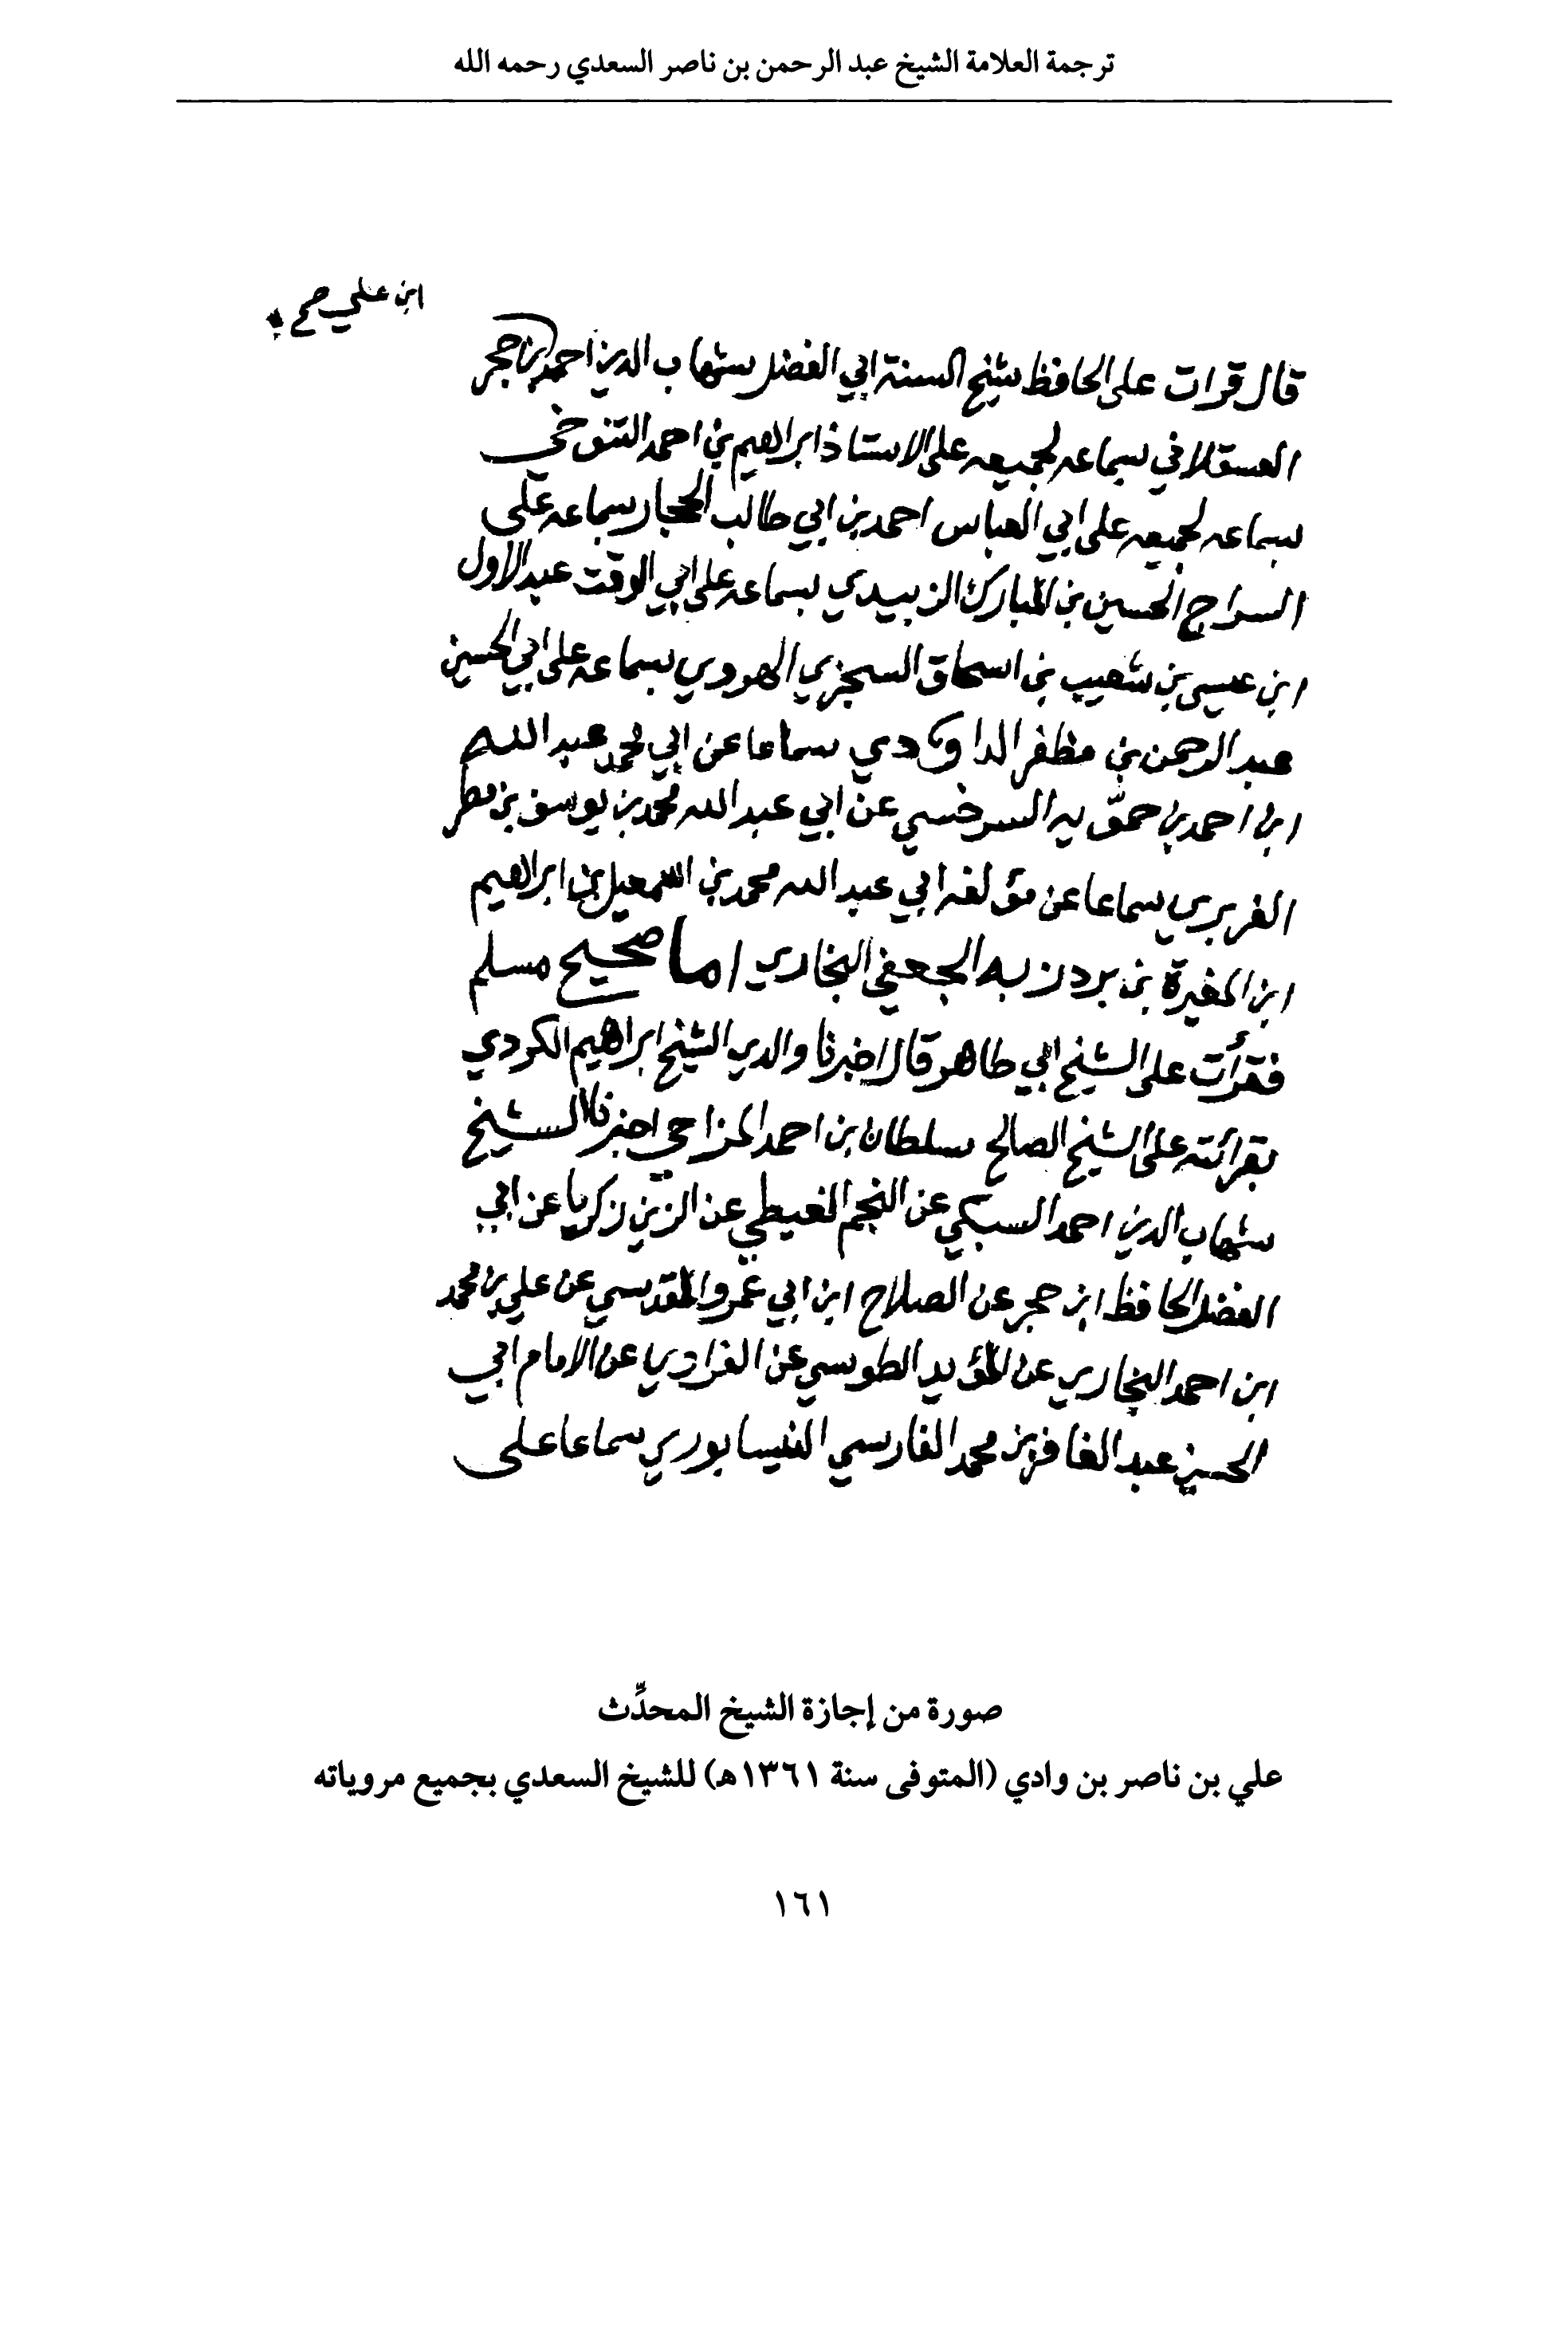 ترجمة العلامة الشيخ عبد الرحمن بن ناصر السعدي رحمه الله
ابن علي صح
قال قرات على الحافظ شيخ السنة ابي الفضل شهاب الدين احمد ابن حجر
العسقلاني بسماعه لجميعه على الاستاذ ابراهيم بن احمد التنوخي
بسماعه لجميعه على ابي العباس احمد بن ابي طالب الحجار بسماعه على
السراج الحسين بن المبارك الزبيدي بسماعه على ابي الوقت عبد الاول
ابن عيسى بن شعيب بن اسحاق السجزي الهروي بسماعه على ابي الحسين
عبد الرحمن بن مظفر الداودي سماعا عن ابي محمد عبد الله
ابن احمد بن حمّويه السرخسي عن ابي عبد الله محمد بن يوسف بن مطر
الفربري سماعا عن مؤلفه ابي عبد الله محمد بن اسمعيل بن ابراهيم
ابن المغيرة بن بردزبه الجعفي البخاري اما صحيح مسلم
فقرأت على الشيخ ابي طاهر قال اخبرنا والدي الشيخ ابراهيم الكردي
بقرائته على الشيخ الصالح سلطان بن احمد المزاحي اخبرنا الشيخ
شهاب الدين احمد السبكي عن النجم الغيطي عن الزين زكريا عن ابي
الفضل الحافظ ابن حجر عن الصلاح ابن ابي عمرو المقدسي عن علي بن محمد
ابن احمد البخاري عن المؤيد الطوسي عن الفراوي عن الامام ابي
الحسين عبد الغافر بن محمد الفارسي النيسابوري سماعا على
صورة من إجازة الشيخ المحدِّث
علي بن ناصر بن وادي (المتوفى سنة ١٣٦١هـ) للشيخ السعدي بجميع مروياته
١٦١